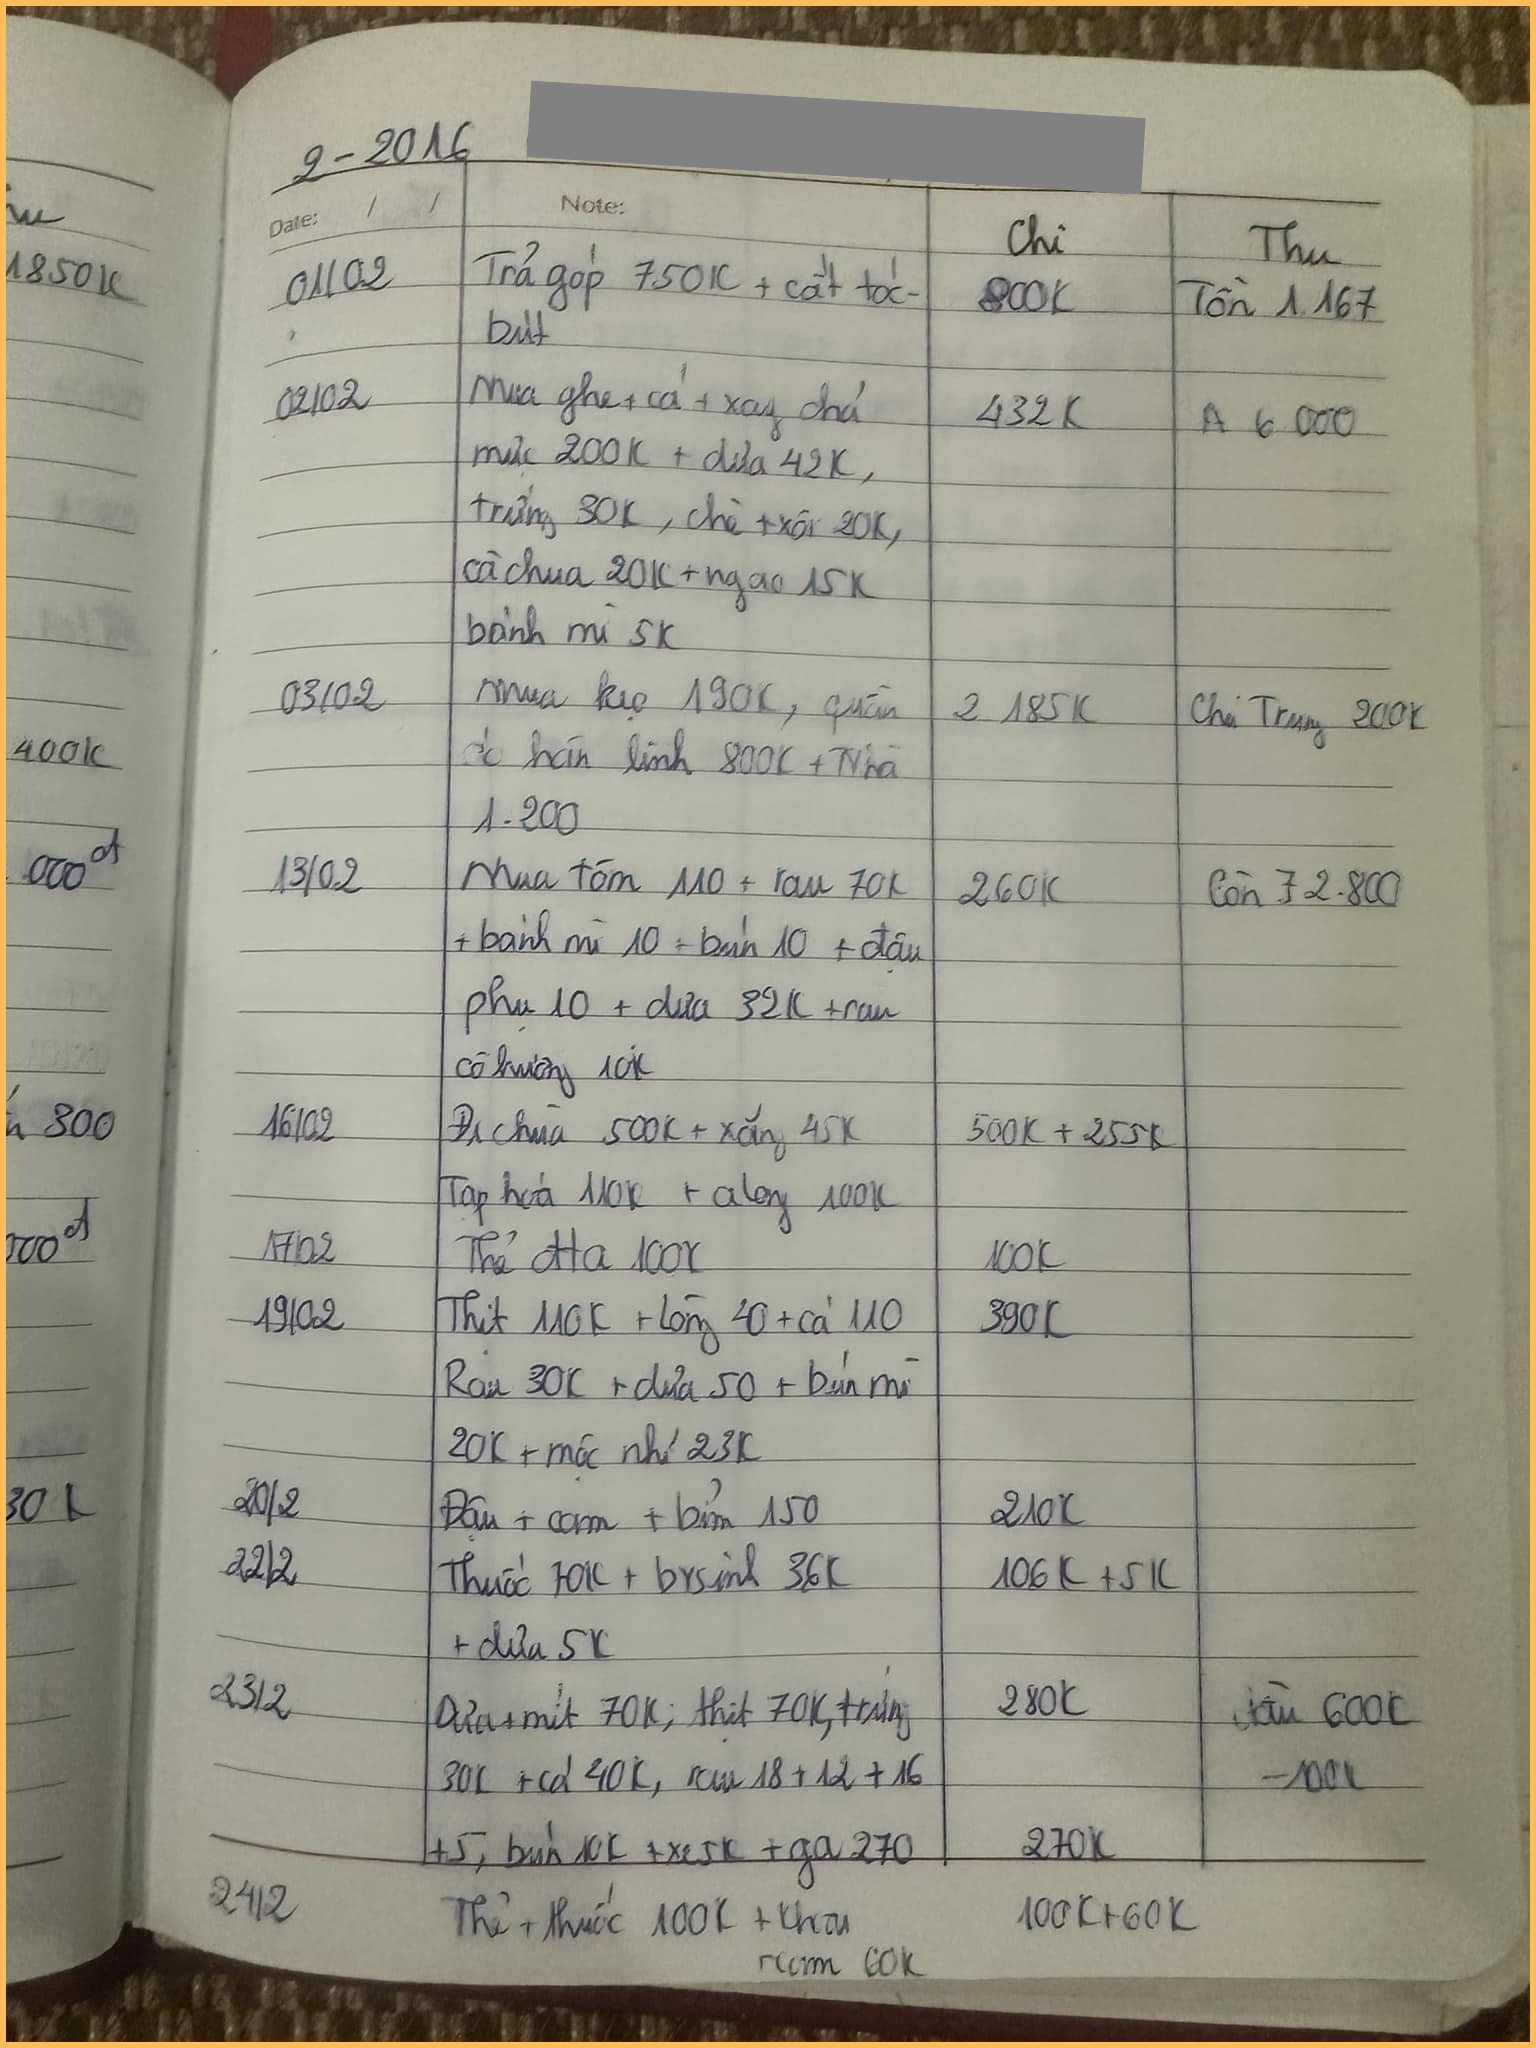 2-2016
Date: / / Note:
Chi Thu
01/02 Trả góp 750K + cắt tóc- 800K Tồn 1.167
bút
02/02 Mua ghẹ + cá + xay chả 432K A 6 000
mực 200K + dứa 42K,
trứng 30K, chè + xôi 20K,
cà chua 20K + ngao 15K
bánh mì 5K
03/02 Mua kẹo 190K, quần 2 185K Chị Trung 200K
áo hân linh 800K + Nhà
1.200
13/02 Mua tôm 110 + rau 70K 260K Còn 72.800
+ bánh mì 10 + bún 10 + đậu
phụ 10 + dưa 32K + rau
cô hương 10K
16/02 Đi chùa 500K + xăng 45K 500K + 255K
Tạp hoá 110K + along 100K
17/02 Thẻ 100K 100K
19/02 Thịt 110K + lòng 40 + cá 110 390K
Rau 30K + dứa 50 + bún mì
20K + mộc nhĩ 23K
20/2 Đậu + cam + bỉm 150 210K
22/2 Thuốc 70K + bvsinh 36K 106K + 5K
+ dứa 5K
23/2 Dứa + mít 70K; thịt 70K, trứng 280K 600K
30K + cá 40K, rau 18 + 12 + 16 -100K
+5, bún 10K + xe 5K + ga 270 270K
24/2 Thẻ + thuốc 100K + khau 100K+60K
60K
1850K
400K
000đ
300
000đ
30K